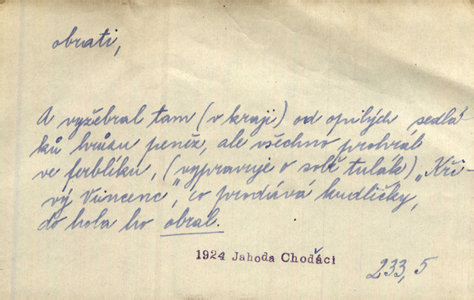 obrati,
A vyžebral tam (v kraji) od opilých sedlá
ků hrůzu peněz, ale všechno prohrál
ve ferblíku, (vypravuje o sobě tulák) „Kři-
vý Vincenc", co prodává kudličky,
do hola ho obral.
1924 Jahoda Choďáci
233,5